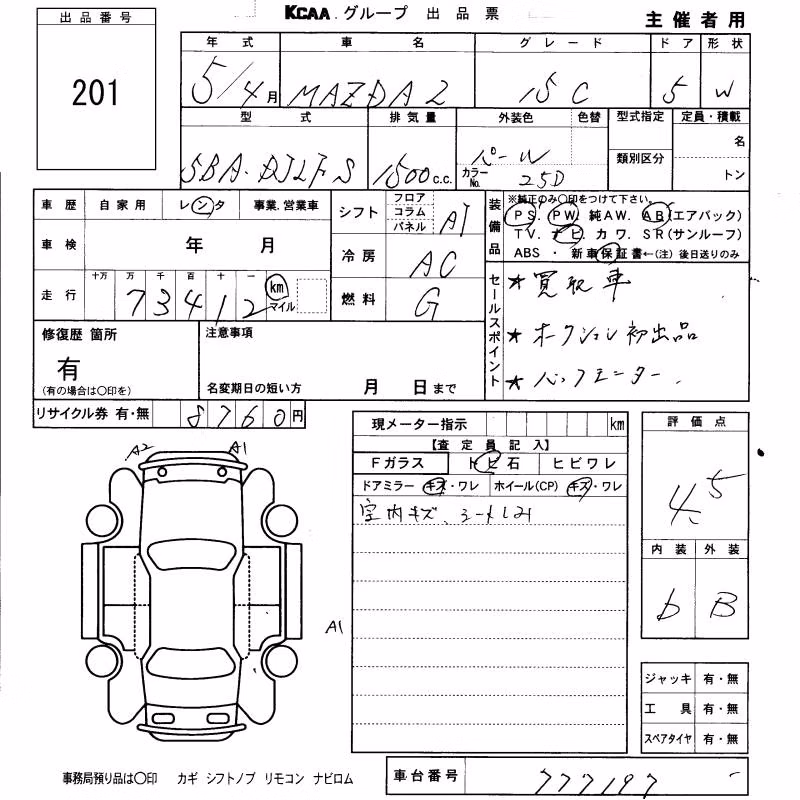 出品番号
KCAA グループ 出品票
主催者用
201
年式 車名 グレード ドア 形状
5/4月 MAZDA2 15C 5 W
型式 排気量 外装色 色替 型式指定 定員・積載
5BA-DJLFS 1500c.c. パールW
カラーNo. 25D
類別区分
名
トン
車歴 自家用 レンタ 事業.営業車
車検 年 月
走行 十万 万 千 百 十 一
73412 km マイル
シフト フロア コラム パネル AT
冷房 AC
燃料 G
装備品
※純正のみ○印をつけて下さい。
PS. PW. 純AW. AB(エアバック)
TV. ナビ. カワ. SR(サンルーフ)
ABS ・ 新車保証書←(注)後日送りのみ
セールスポイント
★買取車
★オークション初出品
★バックモニター.
修復歴 箇所
有
(有の場合は○印を)
注意事項
名変期日の短い方 月 日まで
リサイクル券 有・無 8760円
現メーター指示 km
【査定員記入】
Fガラス トビ石 ヒビワレ
ドアミラー キズ・ワレ ホイール(CP) キズ・ワレ
室内キズ、シートしみ
評価点
4.5
内装 外装
b B
A2 A1
A1
ジャッキ 有・無
工具 有・無
スペアタイヤ 有・無
事務局預り品は○印 カギ シフトノブ リモコン ナビロム
車台番号 777197